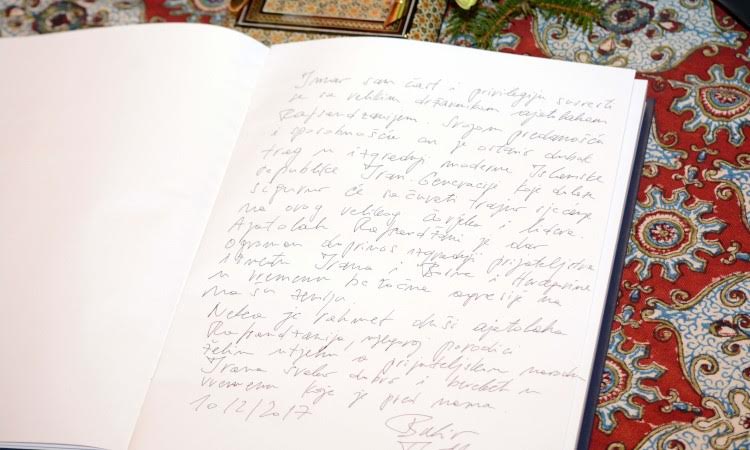 Imao sam čast i privilegiju susresti
se sa velikim državnikom ajatolahom
Rafsandžanijem. Svojom predanošću
i sposobnošću on je ostavio dubok
trag u izgradnji moderne Islamske
republike Iran. Generacije koje dolaze
sigurno će sačuvati trajno sjećanje
na ovog velikog čovjeka i lidera.
Ajatolah Rafsandžani je dao
ogroman doprinos izgradnji prijateljstva
između Irana i Bosne i Hercegovine
u vremenu bezočne agresije na
našu zemlju.
Neka je rahmet duši ajatolaha
Rafsandžanija, njegovoj porodici
želim utjehu a prijateljskom narodu
Irana svako dobro i bereket u
vremenu koje je pred nama.
10/2/2017
Bakir